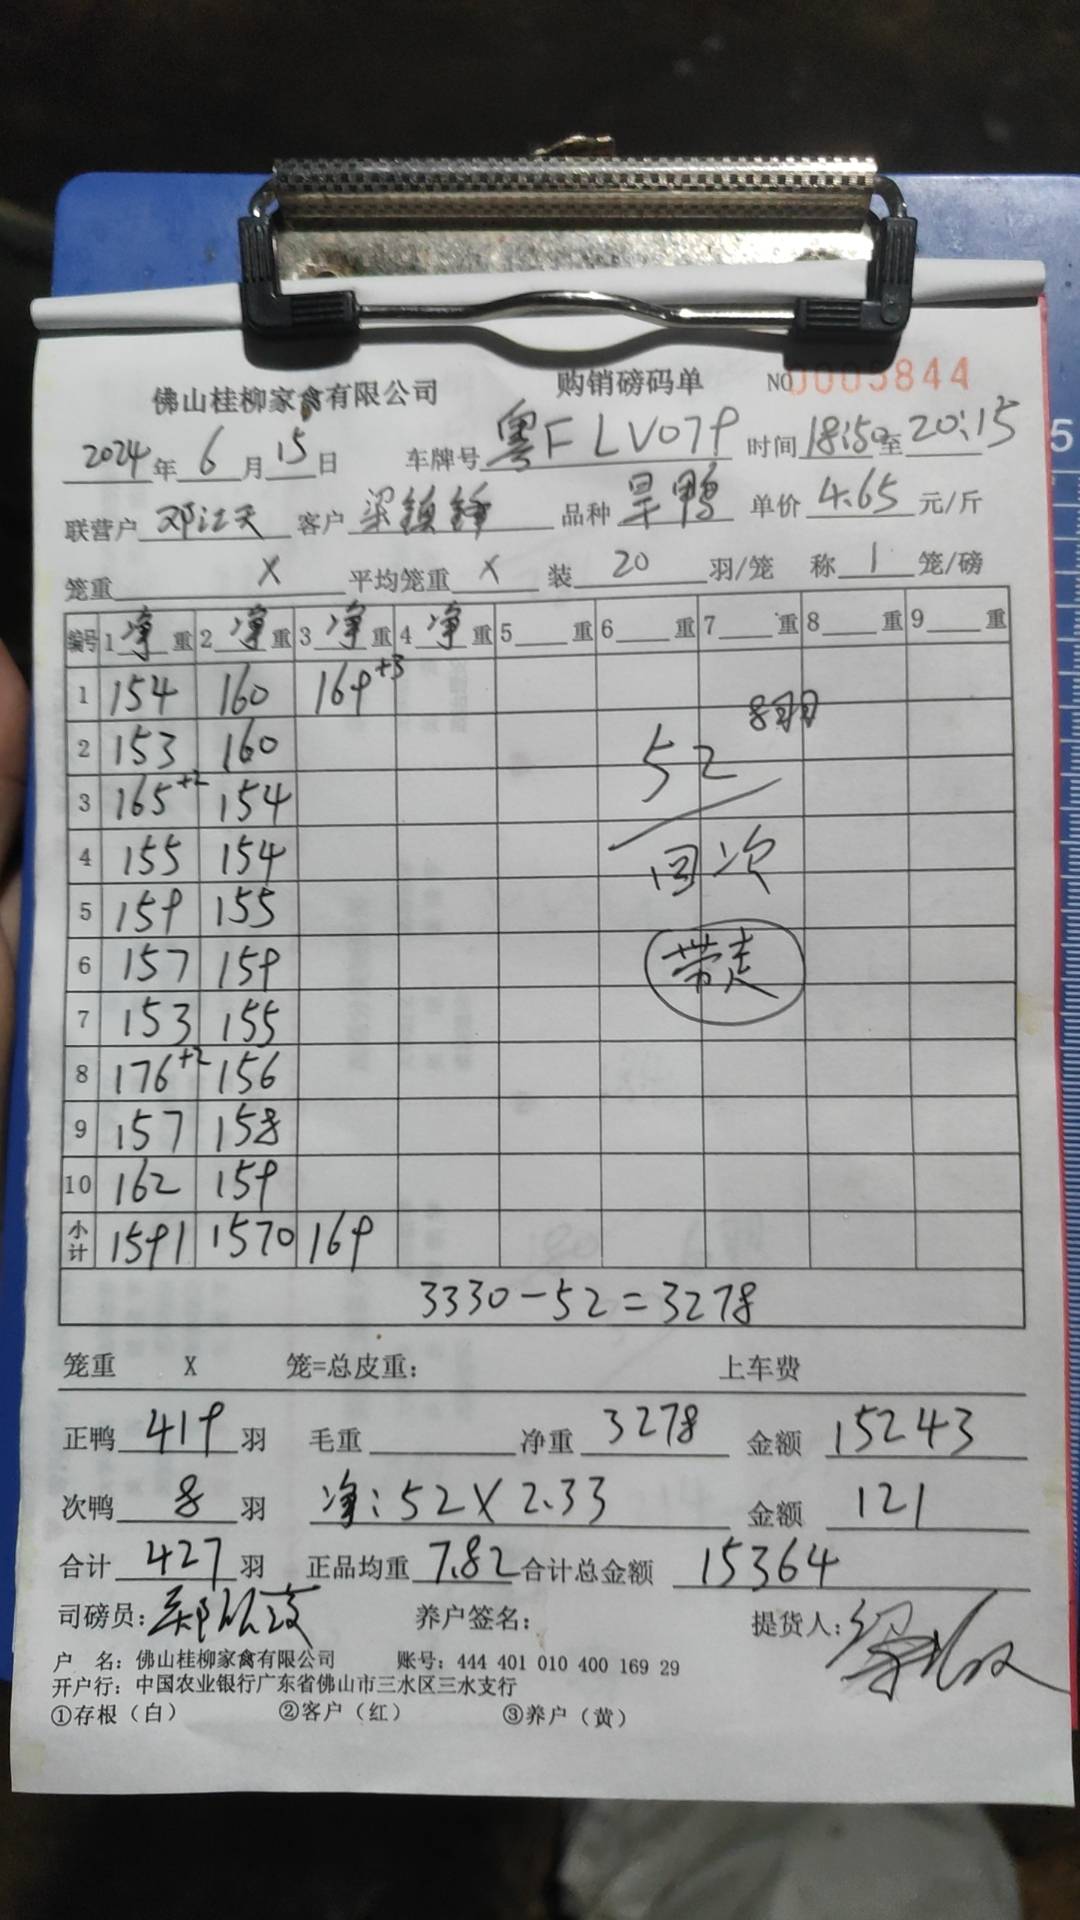 佛山桂柳家禽有限公司 购销磅码单 NO 0005844
2024年 6 月 15 日 车牌号 粤F LV079 时间 18:50 至 20:15
联营户 邓江天 客户 梁镇锋 品种 旱鸭 单价 4.65 元/斤
笼重 X 平均笼重 X 装 20 羽/笼 称 1 笼/磅
编号 1 净 重 2 净 重 3 净 重 4 净 重 5 重 6 重 7 重 8 重 9 重
1 154 160 169+3
8羽
2 153 160
52
3 165+2 154
4 155 154
回次
5 159 155
6 157 159
带走
7 153 155
8 176+2 156
9 157 158
10 162 159
小计 1591 1570 169
3330-52=3278
笼重 X 笼=总皮重: 上车费
正鸭 419 羽 毛重 净重 3278 金额 15243
次鸭 8 羽 净:52X2.33 金额 121
合计 427 羽 正品均重 7.82 合计总金额 15364
司磅员: 养户签名: 提货人:
户 名: 佛山桂柳家禽有限公司 账号: 444 401 010 400 169 29
开户行: 中国农业银行广东省佛山市三水区三水支行
①存根（白） ②客户（红） ③养户（黄）
5